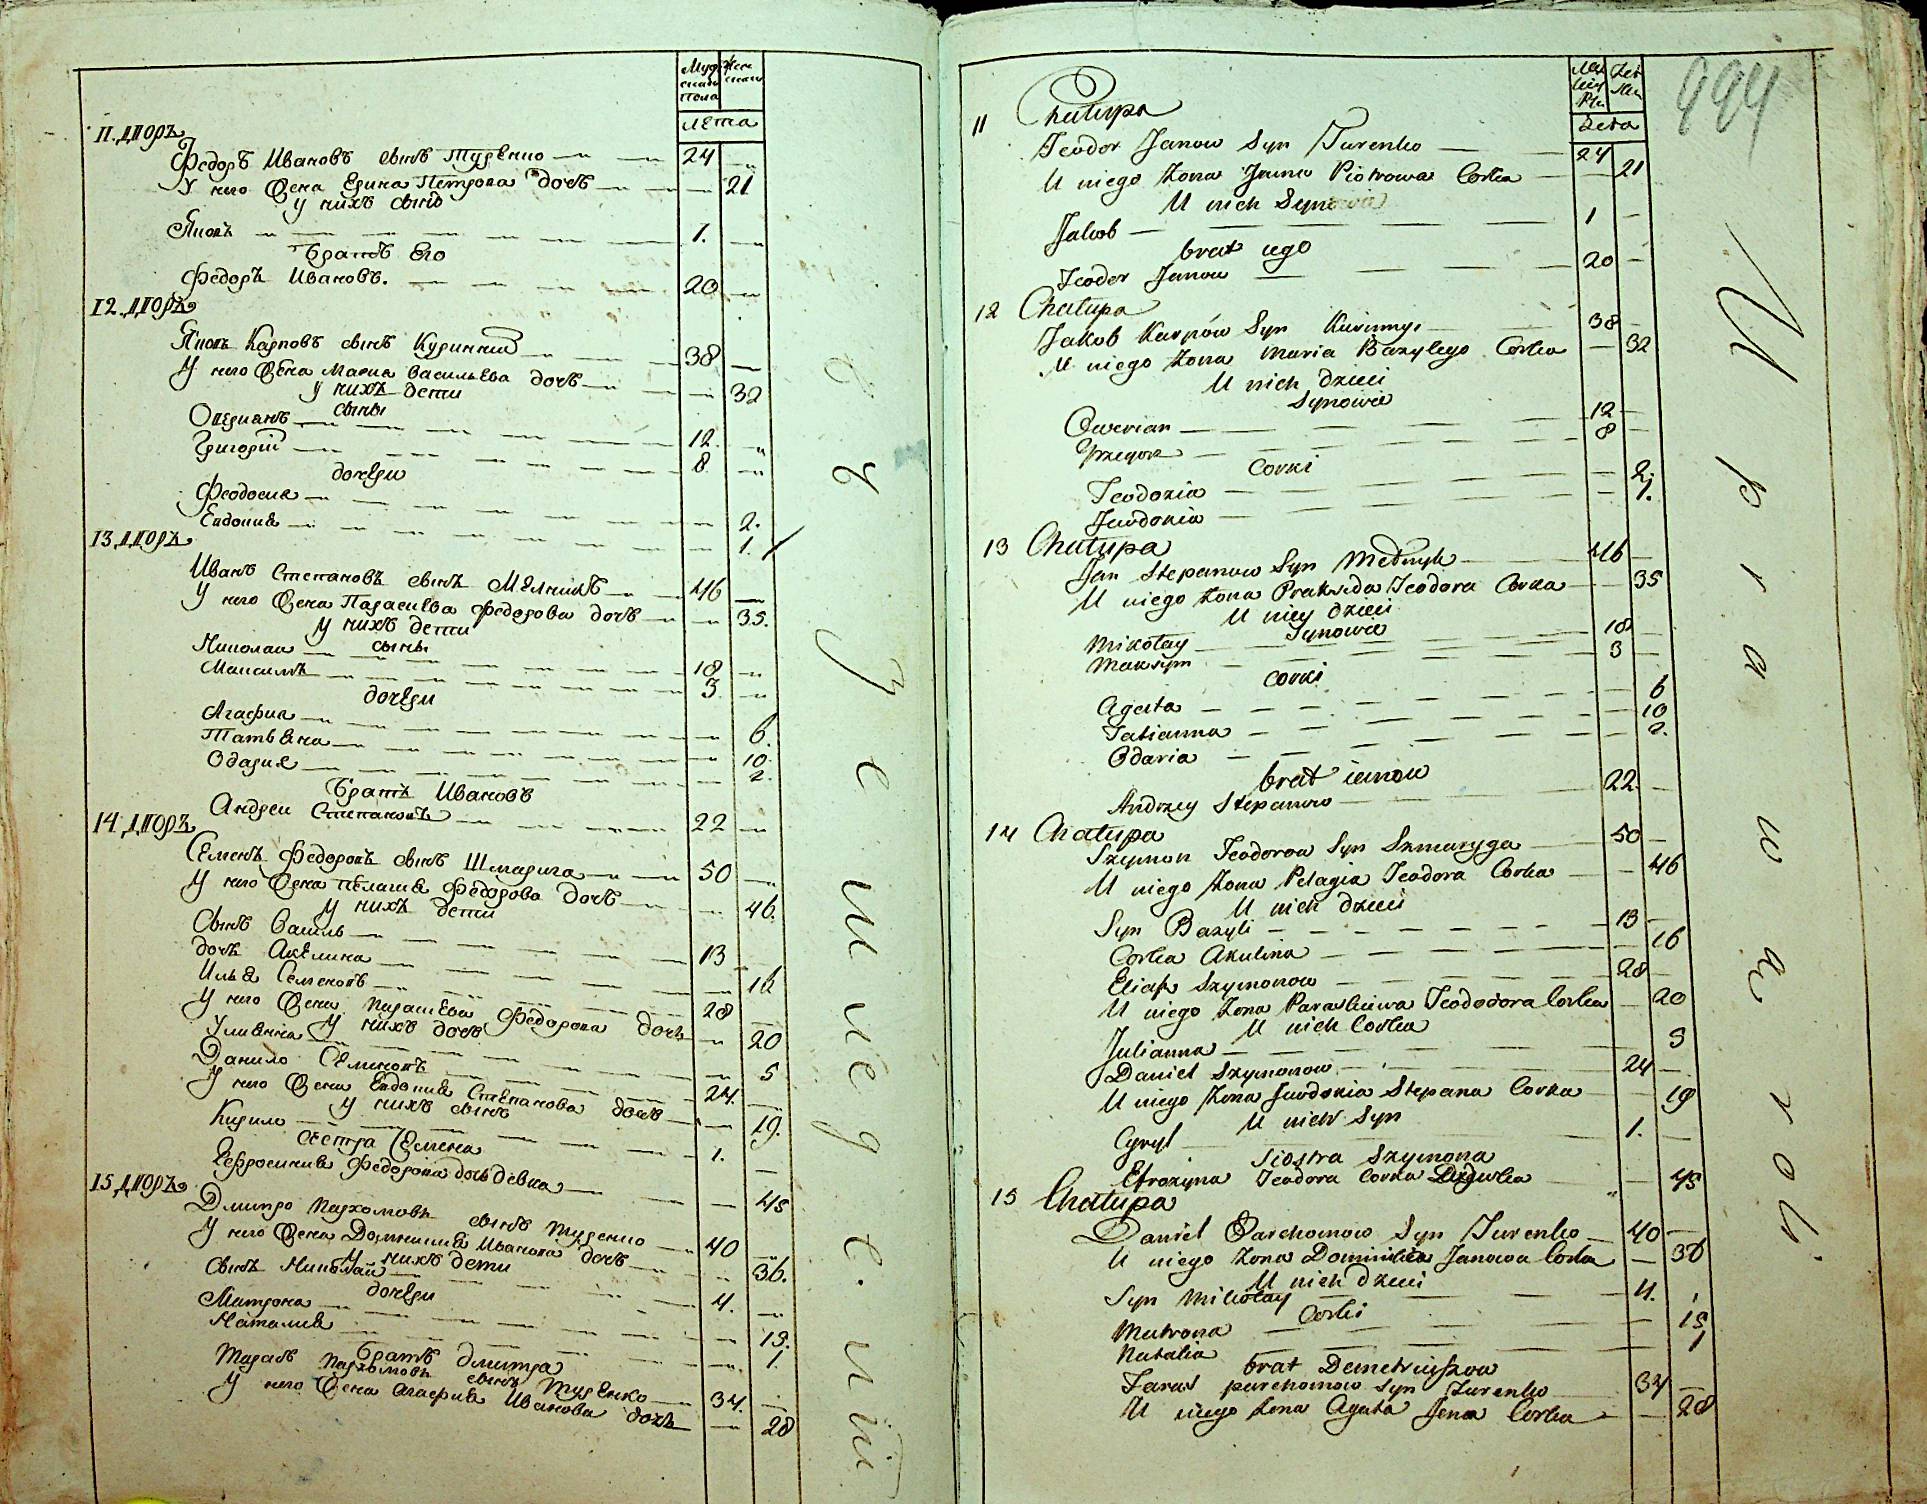 Муж
скаго
Пола
Жен
скаго
лѣта
11. дворъ
Федоръ Ивановъ сынъ Турѣнко 24
У него Жена Ерина Петрова дочь 21
У нихъ сынъ
Яковъ 1.
Братъ Его
Федоръ Ивановъ. 20
12. дворъ
Яковъ Карповъ сынъ Куринний 38
У него Жена Мариа Васильева дочь 32
У нихъ дети
сыны
Оверианъ 12.
Григорий 8
дочери
Феодосиа 2.
Евдокиа 1.
13 дворъ
Иванъ Степановъ сынъ Мелникъ 46
У него Жена Параскева Федорова дочь 35.
У нихъ дети
сыны
Николаи 18
Максимъ 3
дочери
Агафиа 6.
Татьяна 10.
Одариа 2.
Братъ Ивановъ
Андреи Степановъ 22
14 дворъ
Семенъ Федоровъ сынъ Шмарига 50
У него Жена Пелагиа Федорова дочь 46.
У нихъ дети
Сынъ Василь 13
дочь Акелина 16
Илья Семеновъ 28
У него Жена Параскева Федорова дочь 20
У нихъ дочь
Улианиа 5
Данило Семеновъ 24.
У него Жена Евдокиа Степанова дочь 19.
У нихъ сынъ
Кирило 1.
Сестра Семена
Ефросиния Федорова дочь девка 45
15 дворъ
Дмитро Пархомовъ сынъ Туренко 40
У него Жена Домникиа Иванова дочь 36.
У нихъ дети
Сынъ Николай 4.
дочери
Матрона 15.
Наталиа 1.
Братъ Дмитра
Тарасъ Пархомовъ сынъ Турѣнко 34.
У него Жена Агафиа Иванова дочь 28
994
Zeta
11 Chałupa
Teodor Janow Syn Turenko 24
U niego Żona Jrina Piotrowa Corka 21
U nich Synowie
Jakob 1
brat iego
Teodor Janow 20
12 Chałupa
Jakob Karpów Syn Kurinnyi 38
U niego Żona Maria Bazylego Corka 32
U nich dzieci
Synowie
Owerian 12
Grzegorz 8
Corki
Teodozia 2.
Jewdokia 1.
13 Chałupa
Jan Stepanow Syn Mełnyk 46
U niego Żona Praksida Teodora Corka 35
U niey dzieci
Synowie
Mikołay 18
Maksym 3
Corki
Agata 6
Tatianna 10
Odaria 2.
brat ianow
Andrzey Stepanow 22
14 Chałupa
Szymon Teodorow Syn Szmaryga 50
U niego Żona Pelagia Teodora Corka 46
U nich dzieci
Syn Bazyli 13
Corka Akulina 16
Eliasz Szymonow 28
U niego Żona Paraskiewa Teododora Corka 20
U nich Corka
Julianna 5
Daniel Szymonow 24
U niego Żona Jewdokia Stepana Corka 19
U nich Syn
Cyryl 1.
Siostra Szymona
Efrozyna Teodora Corka Dziewka 45
15 Chałupa
Daniel Parchomow Syn Turenko 40
U niego Żona Dominikia Janowa Corka 36
U nich dzieci
Syn Mikołay 4.
Corki
Matrona 15
Natalia 1
brat Demetriuszow
Taras parchomow Syn Turenko 34
U niego Żona Agata Jana Corka 28